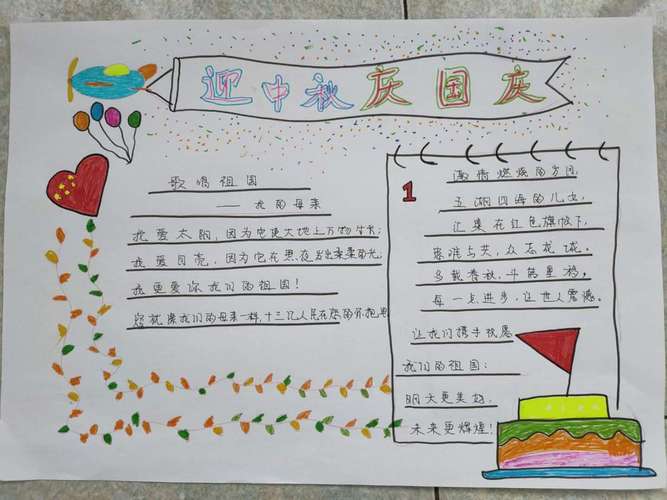 迎中秋庆国庆
歌唱祖国
——我的母亲
我爱太阳,因为它使大地上万物生长;
我爱月亮,因为它在黑夜发出柔柔的光;
我更爱你我们的祖国!
您就像我们的母亲一样,十三亿人民在您的怀抱里
1
激情燃烧的岁月,
五湖四海的儿女,
汇集在红色旗帜下,
患难与共,众志成城。
多载春秋,斗转星移,
每一点进步,让世人震憾。
让我们携手祝愿
我们的祖国:
明天更美好,
未来更辉煌!